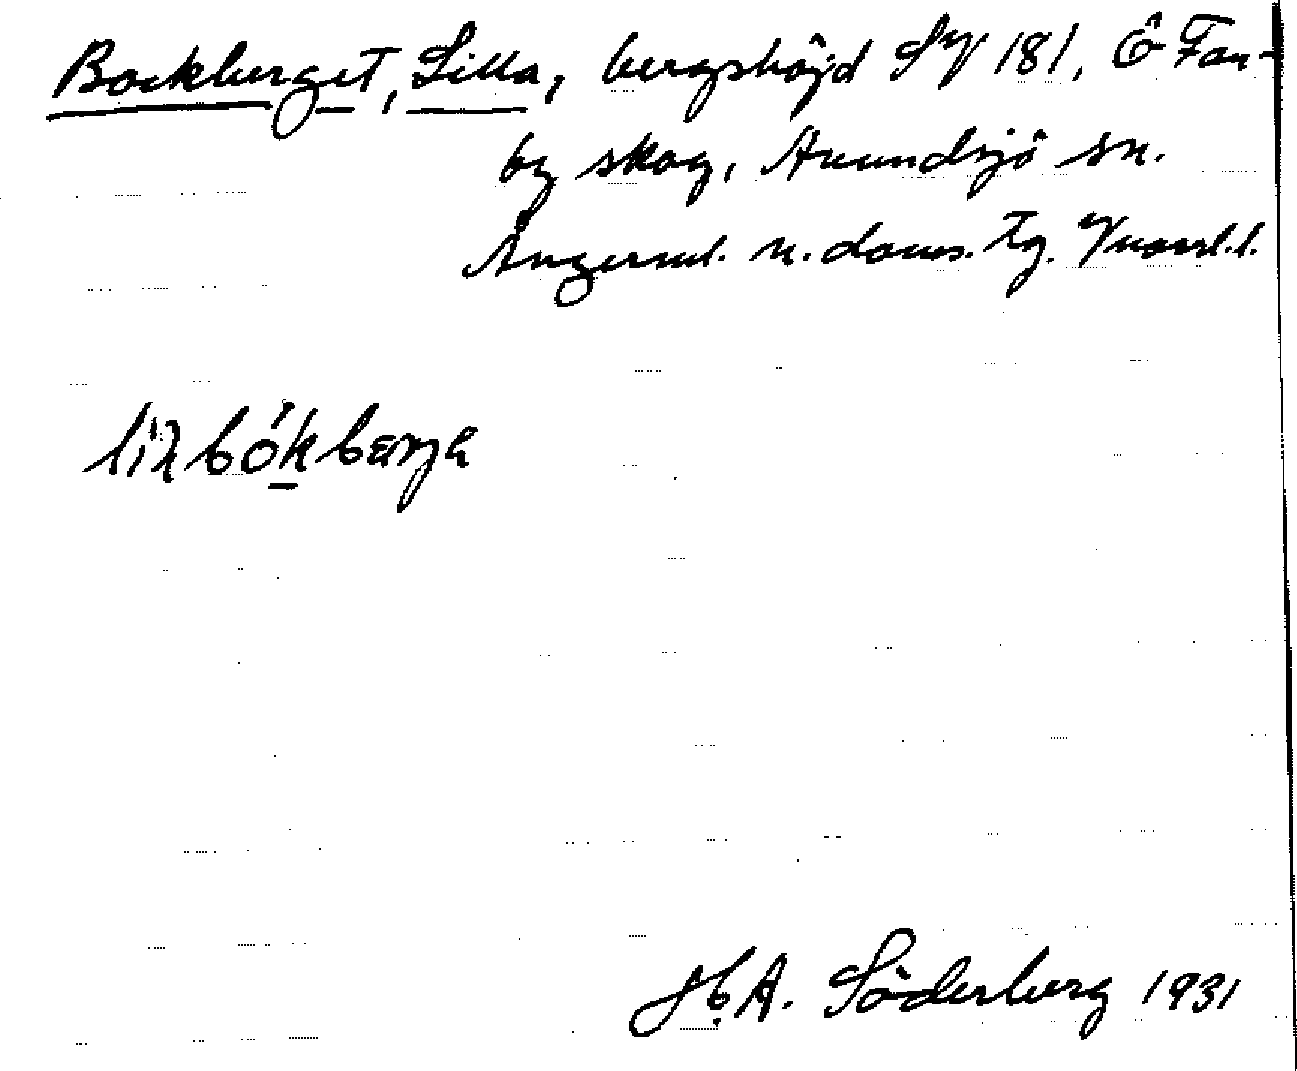 Bockberget, Lilla, bergshöjd SV 181, Ö Fan-
by skog, Anundsjö sn.
Ångerml. n. doms. Tg. Vnorrl.l.
liʹlbókbærjɐ
H.A. Söderberg 1931